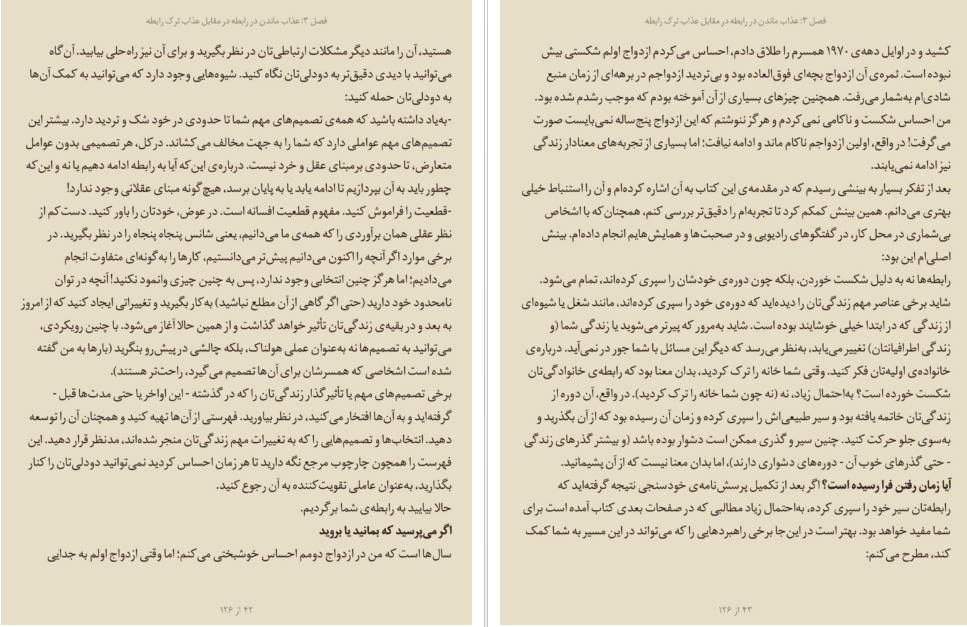 فصل ۳: عذاب ماندن در رابطه در مقابل عذاب ترک رابطه
هستید، آن را مانند دیگر مشکلات ارتباطی‌تان در نظر بگیرید و برای آن نیز راه‌حلی بیابید. آن‌گاه
می‌توانید با دیدی دقیق‌تر به دودلی‌تان نگاه کنید. شیوه‌هایی وجود دارد که می‌توانید به کمک آن‌ها
به دودلی‌تان حمله کنید:
-به‌یاد داشته باشید که همه‌ی تصمیم‌های مهم شما تا حدودی در خود شک و تردید دارد. بیشتر این
تصمیم‌های مهم عواملی دارد که شما را به جهت مخالف می‌کشاند. درکل، هر تصمیمی بدون عوامل
متعارض، تا حدودی برمبنای عقل و خرد نیست. درباره‌ی این‌که آیا به رابطه ادامه دهیم یا نه و این‌که
چطور باید به آن بپردازیم تا ادامه یابد یا به پایان برسد، هیچ‌گونه مبنای عقلانی وجود ندارد!
-قطعیت را فراموش کنید. مفهوم قطعیت افسانه است. در عوض، خودتان را باور کنید. دست‌کم از
نظر عقلی همان برآوردی را که همه‌ی ما می‌دانیم، یعنی شانس پنجاه پنجاه را در نظر بگیرید. در
برخی موارد اگر آنچه را اکنون می‌دانیم پیش‌تر می‌دانستیم، کارها را به‌گونه‌ای متفاوت انجام
می‌دادیم؛ اما هرگز چنین انتخابی وجود ندارد، پس به چنین چیزی وانمود نکنید! آنچه در توان
نامحدود خود دارید (حتی اگر گاهی از آن مطلع نباشید) به‌کار بگیرید و تغییراتی ایجاد کنید که از امروز
به بعد و در بقیه‌ی زندگی‌تان تأثیر خواهد گذاشت و از همین حالا آغاز می‌شود. با چنین رویکردی،
می‌توانید به تصمیم‌ها نه به‌عنوان عملی هولناک، بلکه چالشی در پیش‌رو بنگرید (بارها به من گفته
شده است اشخاصی که همسرشان برای آن‌ها تصمیم می‌گیرد، راحت‌تر هستند).
برخی تصمیم‌های مهم یا تأثیرگذار زندگی‌تان را که در گذشته - این اواخر یا حتی مدت‌ها قبل -
گرفته‌اید و به آن‌ها افتخار می‌کنید، در نظر بیاورید. فهرستی از آن‌ها تهیه کنید و همچنان آن را توسعه
دهید. انتخاب‌ها و تصمیم‌هایی را که به تغییرات مهم زندگی‌تان منجر شده‌اند، مدنظر قرار دهید. این
فهرست را همچون چارچوب مرجع نگه دارید تا هر زمان احساس کردید نمی‌توانید دودلی‌تان را کنار
بگذارید، به‌عنوان عاملی تقویت‌کننده به آن رجوع کنید.
حالا بیایید به رابطه‌ی شما برگردیم.
اگر می‌پرسید که بمانید یا بروید
سال‌ها است که من در ازدواج دومم احساس خوشبختی می‌کنم؛ اما وقتی ازدواج اولم به جدایی
۴۲ از ۱۲۶
فصل ۳: عذاب ماندن در رابطه در مقابل عذاب ترک رابطه
کشید و در اوایل دهه‌ی ۱۹۷۰ همسرم را طلاق دادم، احساس می‌کردم ازدواج اولم شکستی بیش
نبوده است. ثمره‌ی آن ازدواج بچه‌ای فوق‌العاده بود و بی‌تردید ازدواجم در برهه‌ای از زمان منبع
شادی‌ام به‌شمار می‌رفت. همچنین چیزهای بسیاری از آن آموخته بودم که موجب رشدم شده بود.
من احساس شکست و ناکامی نمی‌کردم و هرگز ننوشتم که این ازدواج پنج‌ساله نمی‌بایست صورت
می‌گرفت! در واقع، اولین ازدواجم ناکام ماند و ادامه نیافت؛ اما بسیاری از تجربه‌های معنادار زندگی
نیز ادامه نمی‌یابند.
بعد از تفکر بسیار به بینشی رسیدم که در مقدمه‌ی این کتاب به آن اشاره کرده‌ام و آن را استنباط خیلی
بهتری می‌دانم. همین بینش کمکم کرد تا تجربه‌ام را دقیق‌تر بررسی کنم، همچنان‌که با اشخاص
بی‌شماری در محل کار، در گفتگوهای رادیویی و در صحبت‌ها و همایش‌هایم انجام داده‌ام. بینش
اصلی‌ام این بود:
رابطه‌ها نه به دلیل شکست خوردن، بلکه چون دوره‌ی خودشان را سپری کرده‌اند، تمام می‌شود.
شاید برخی عناصر مهم زندگی‌تان را دیده‌اید که دوره‌ی خود را سپری کرده‌اند، مانند شغل یا شیوه‌ای
از زندگی که در ابتدا خیلی خوشایند بوده است. شاید به‌مرور که پیرتر می‌شوید یا زندگی شما (و
زندگی اطرافیانتان) تغییر می‌یابد، به‌نظر می‌رسد که دیگر این مسائل با شما جور در نمی‌آید. درباره‌ی
خانواده‌ی اولیه‌تان فکر کنید. وقتی شما خانه را ترک کردید، بدان معنا بود که رابطه‌ی خانوادگی‌تان
شکست خورده است؟ به‌احتمال زیاد، نه (نه چون شما خانه را ترک کردید). در واقع، آن دوره از
زندگی‌تان خاتمه یافته بود و سیر طبیعی‌اش را سپری کرده و زمان آن رسیده بود که از آن بگذرید و
به‌سوی جلو حرکت کنید. چنین سیر و گذری ممکن است دشوار بوده باشد (و بیشتر گذرهای زندگی
- حتی گذرهای خوب آن - دوره‌های دشواری دارند)، اما بدان معنا نیست که از آن پشیمانید.
آیا زمان رفتن فرا رسیده است؟ اگر بعد از تکمیل پرسش‌نامه‌ی خودسنجی نتیجه گرفته‌اید که
رابطه‌تان سیر خود را سپری کرده، به‌احتمال زیاد مطالبی که در صفحات بعدی کتاب آمده است برای
شما مفید خواهد بود. بهتر است در این‌جا برخی راهبردهایی را که می‌تواند در این مسیر به شما کمک
کند، مطرح می‌کنم:
۴۳ از ۱۲۶